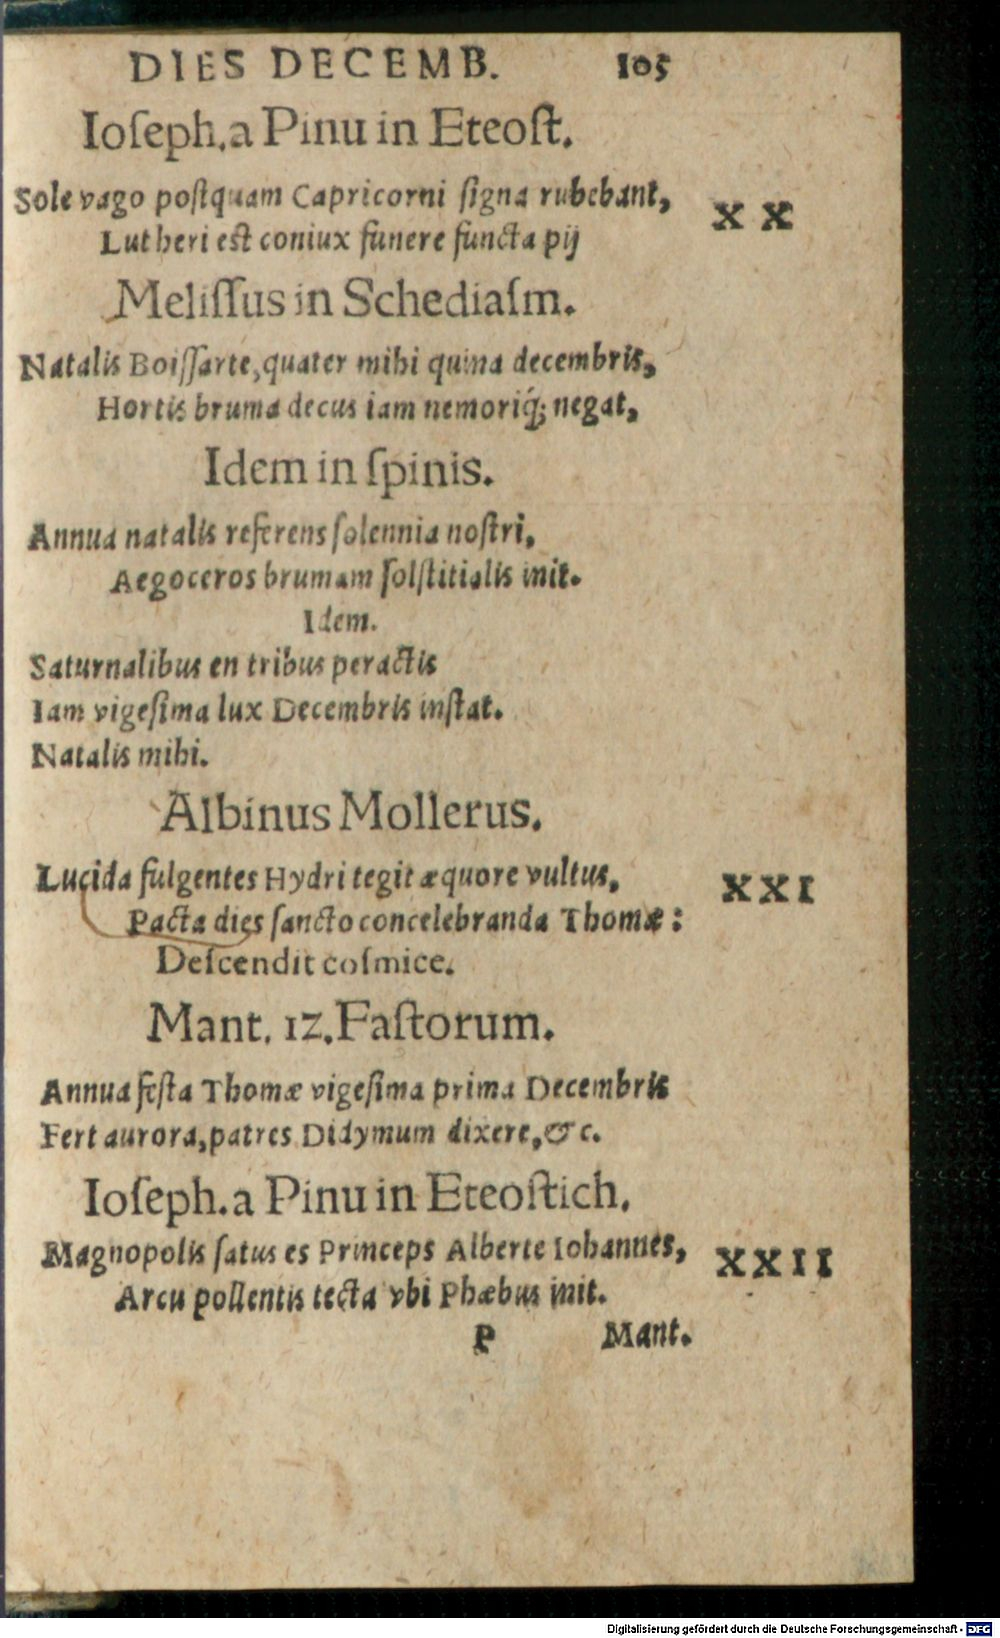 DIES DECEMB. 105
Ioſeph. a Pinu in Eteoſt.
Sole vago poſtquam Capricorni ſigna rubebant, XX
Lutheri eſt coniux funere functa pij
Meliſſus in Schediaſm.
Natalis Boiſſarte, quater mihi quina decembris,
Hortis bruma decus iam nemoriq́; negat,
Idem in ſpinis.
Annua natalis referens ſolennia noſtri,
Aegoceros brumam ſolſtitialis init.
Idem.
Saturnalibus en tribus peractis
Iam vigeſima lux Decembris inſtat.
Natalis mihi.
Albinus Mollerus.
Lucida fulgentes Hydri tegit æquore vultus, XXI
Pacta dies ſancto concelebranda Thomæ:
Deſcendit coſmice.
Mant. 12. Faſtorum.
Annua feſta Thomæ vigeſima prima Decembris
Fert aurora, patres Didymum dixere, &c.
Ioſeph. a Pinu in Eteoſtich.
Magnopolis ſatus es Princeps Alberte Iohannes, XXII
Arcu pollentis tecta vbi Phæbus init.
P Mant.
Digitalisierung gefördert durch die Deutsche Forschungsgemeinschaft - DFG